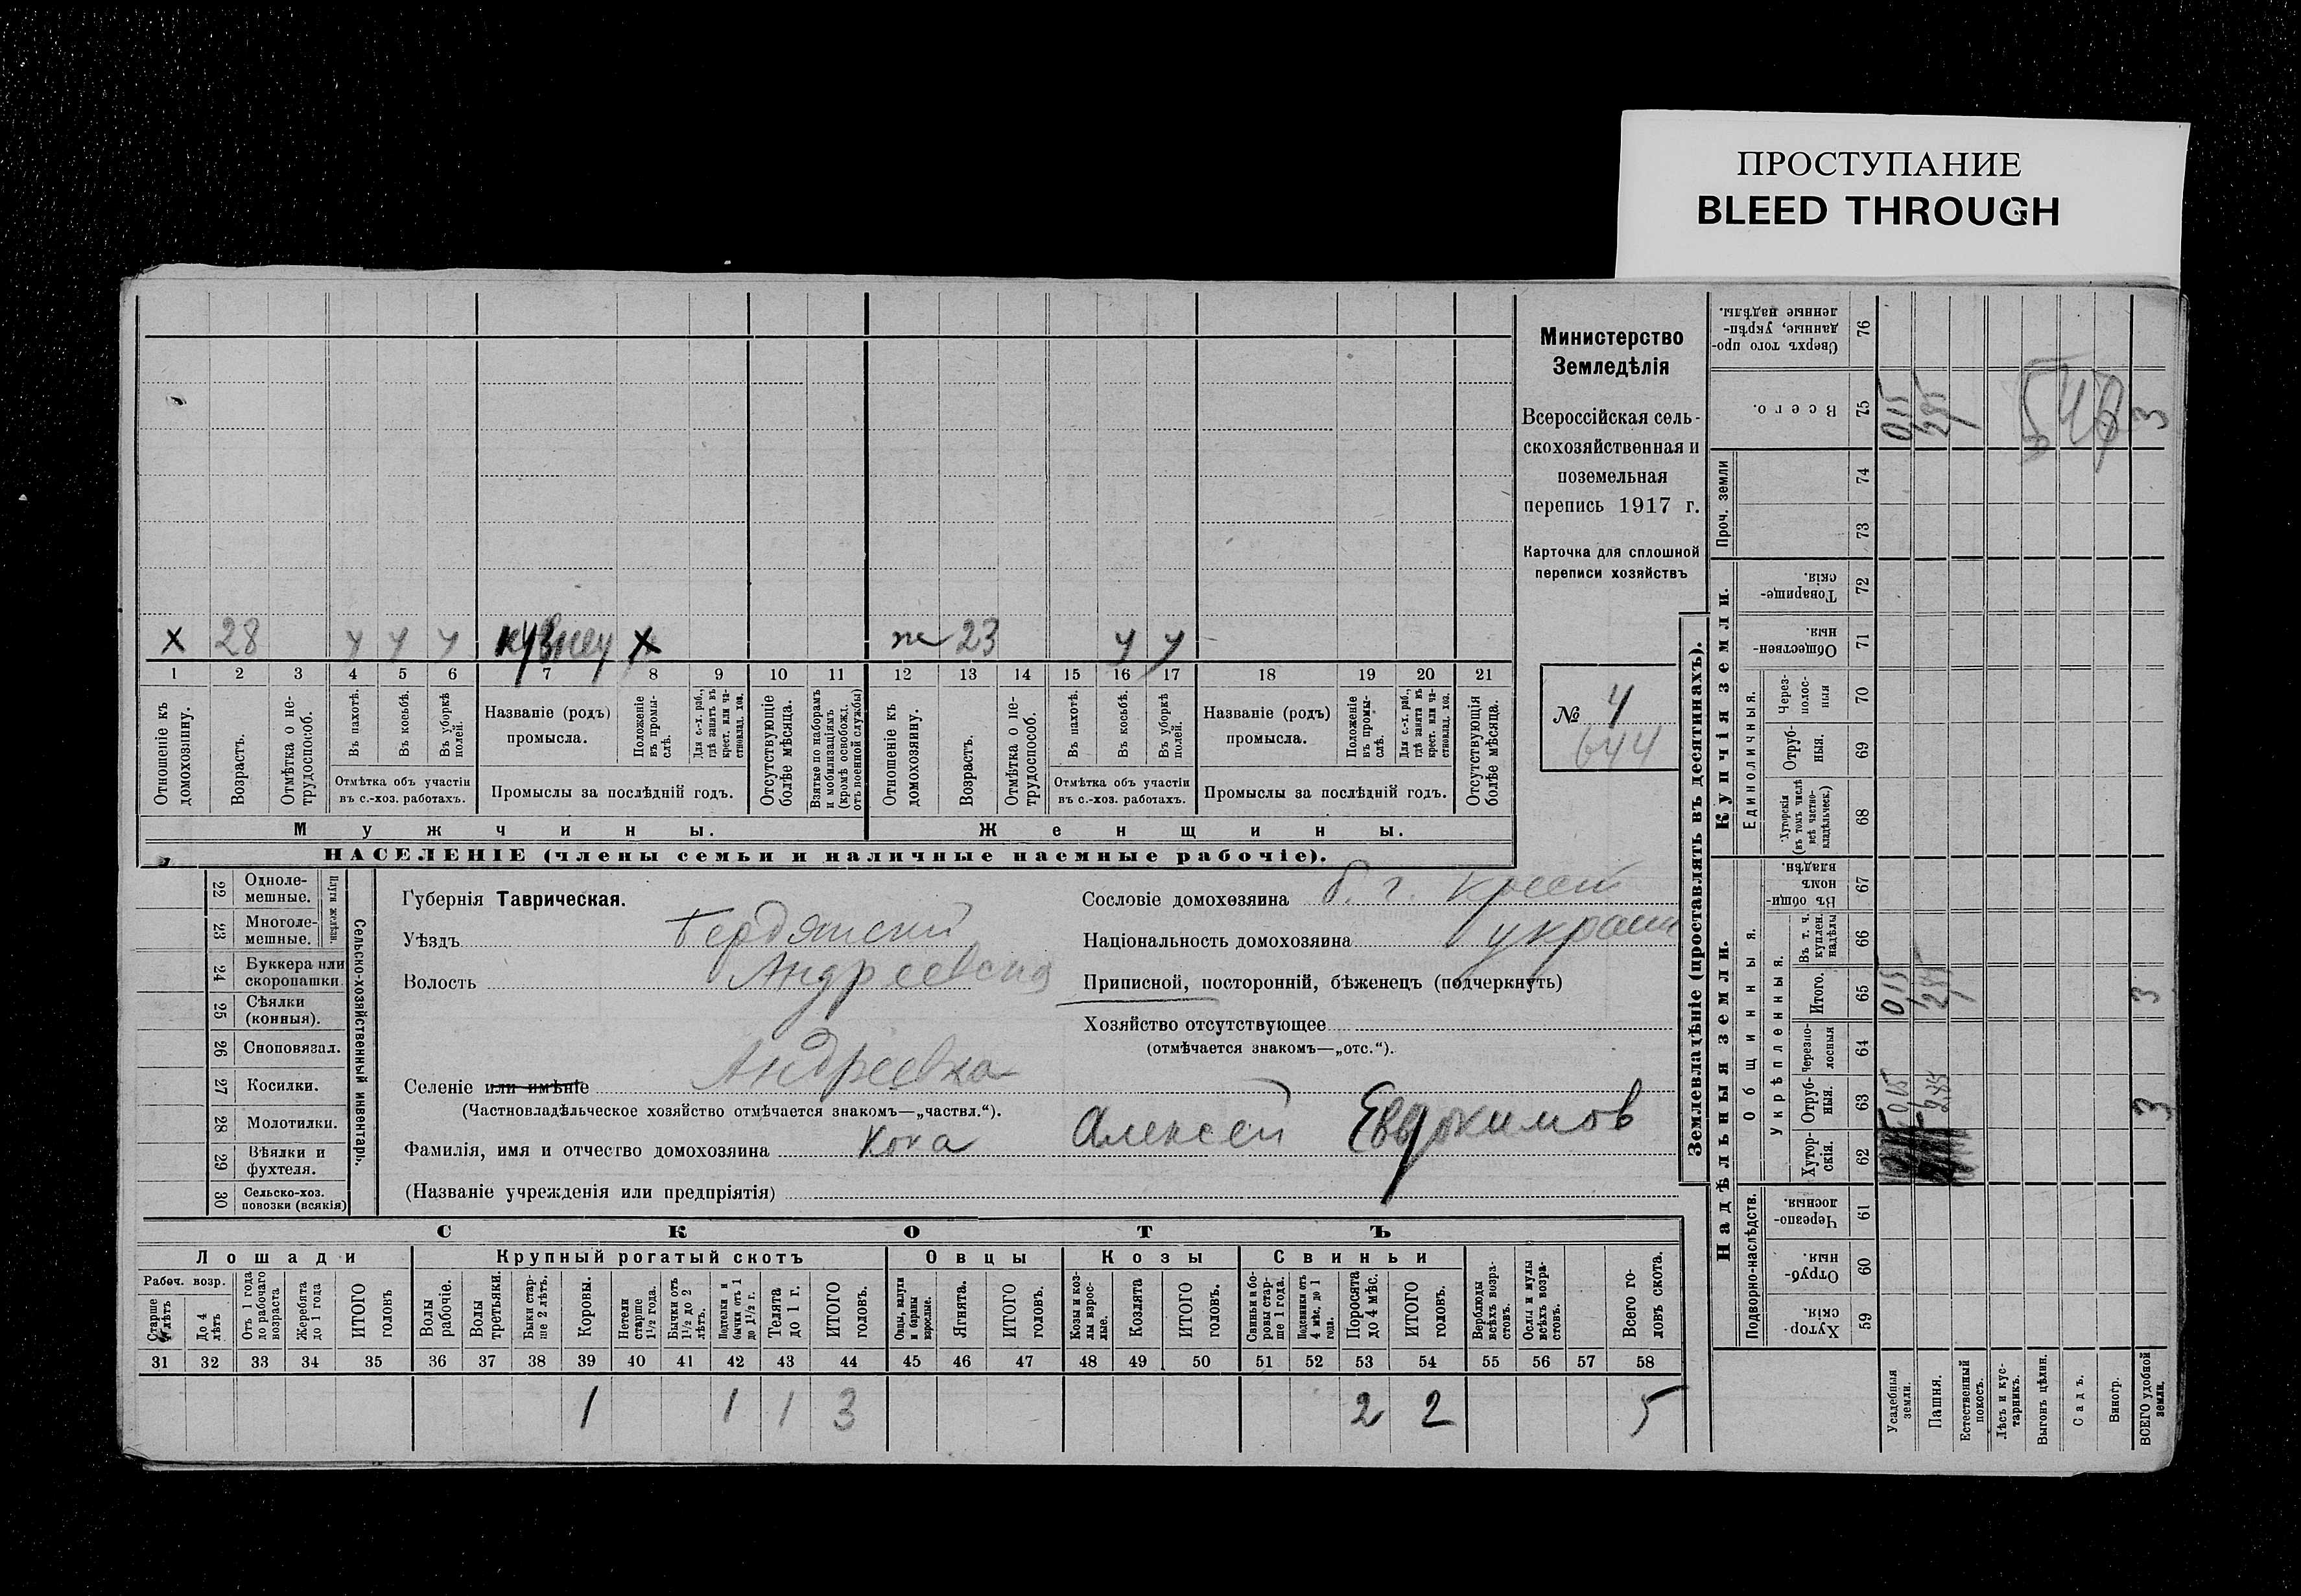 ПРОСТУПАНИЕ
BLEED THROUGH
х 28 у у у кузнец х ж 23 у у
1 2 3 4 5 6 7 8 9 10 11 12 13 14 15 16 17 18 19 20 21
Отношеніе къ домохозяину.
Возрастъ.
Отмѣтка о не-трудоспособ.
Въ пахотѣ.
Въ косьбѣ.
Въ уборкѣ полей.
Отмѣтка объ участіи
въ с.-хоз. работахъ.
Названіе (родъ)
промысла.
Положеніе въ промы-слѣ.
Для с.-х. раб., гдѣ занятъ въ крест. или ча-стновлад. хоз.
Промыслы за послѣдній годъ.
Отсутствующіе болѣе мѣсяца.
Взятые по наборамъ и мобилизаціямъ (кромѣ освобожд. отъ военной службы)
Отношеніе къ домохозяину.
Возрастъ.
Отмѣтка о не-трудоспособ.
Въ пахотѣ.
Въ косьбѣ.
Въ уборкѣ полей.
Отмѣтка объ участіи
въ с.-хоз. работахъ.
Названіе (родъ)
промысла.
Положеніе въ промы-слѣ.
Для с.-х. раб., гдѣ занята въ крест. или ча-стновлад. хоз.
Промыслы за послѣдній годъ.
Отсутствующія болѣе мѣсяца.
Мужчины.
Женщины.
НАСЕЛЕНІЕ (члены семьи и наличные наемные рабочіе).
Министерство
Земледѣлія
Всероссійская сель-
скохозяйственная и
поземельная
перепись 1917 г.
Карточка для сплошной
переписи хозяйствъ
№ 4
644
22 Одноле-мешные.
23 Многоле-мешные.
Плуги желѣзн.
24 Буккера или скоропашки
25 Сѣялки (конныя).
26 Сноповязал.
27 Косилки.
28 Молотилки.
29 Вѣялки и фухтеля.
30 Сельско-хоз. повозки (всякія)
Сельско-хозяйственный инвентарь.
Губернія Таврическая.
Уѣздъ Бердянский
Волость Андреевская
Селеніе или имѣніе Андреевка
(Частновладѣльческое хозяйство отмѣчается знакомъ—„частвл.“).
Фамилія, имя и отчество домохозяина Кока Алексей Евдокимов
(Названіе учрежденія или предпріятія)
Сословіе домохозяина б. г. крест
Національность домохозяина украин
Приписной, посторонній, бѣженецъ (подчеркнуть)
Хозяйство отсутствующее
(отмѣчается знакомъ—„отс.“).
СКОТЪ
Лошади
Крупный рогатый скотъ
Овцы
Козы
Свиньи
Рабоч. возр.
Старше 4 лѣтъ
До 4 лѣтъ
Отъ 1 года до рабочаго возраста
Жеребята до 1 года
ИТОГО головъ
Волы рабочіе.
Волы третьяки.
Быки стар-ше 2 лѣтъ.
Коровы.
Нетели старше 1½ года.
Бычки отъ 1½ до 2 лѣтъ.
Подтелки и бычки отъ 1 до 1½ г.
Телята до 1 г.
ИТОГО головъ.
Овцы, валухи и бараны взрослые.
Ягнята.
ИТОГО головъ.
Козы и коз-лы взрос-лые.
Козлята
ИТОГО головъ.
Свиньи и бо-ровы стар-ше 1 года.
Подсвинки отъ 4 мѣс. до 1 года.
Поросята до 4 мѣс.
ИТОГО головъ.
Верблюды всѣхъ возра-стовъ.
Ослы и мулы всѣхъ возра-стовъ.
Всего го-ловъ скота.
31 32 33 34 35 36 37 38 39 40 41 42 43 44 45 46 47 48 49 50 51 52 53 54 55 56 57 58
1 1 1 3 2 2 5
Землевладѣніе (проставлять въ десятинахъ).
Надѣльныя земли.
Купчія земли.
Проч. земли
Подворно-наслѣдств.
Общинныя.
Укрѣпленныя.
Единоличныя.
Хутор-скія. 59
Отруб-ныя. 60
Черезпо-лосныя. 61
Хутор-скія. 62
Отруб-ныя. 63
Черезпо-лосныя 64
Итого. 65
Въ т. ч. куплен. надѣлы 66
Въ общи-номъ владѣн. 67
Хуторскія (въ томъ числѣ всѣ частно-владѣльческ.) 68
Отруб-ныя. 69
Через-полос-ныя 70
Обществен-ныя. 71
Товарище-скія. 72
73
74
Всего. 75
Сверхъ того про-данные, укрѣп-ленные надѣлы. 76
Усадебныя земли. 0,15 0,15 0,15
Пашня. 2,85 2,85 2,85
Естественный покосъ.
Лѣсъ и кус-тарникъ.
Выгонъ цѣлин.
Садъ.
Виногр.
ВСЕГО удобной земли. 3 3 3